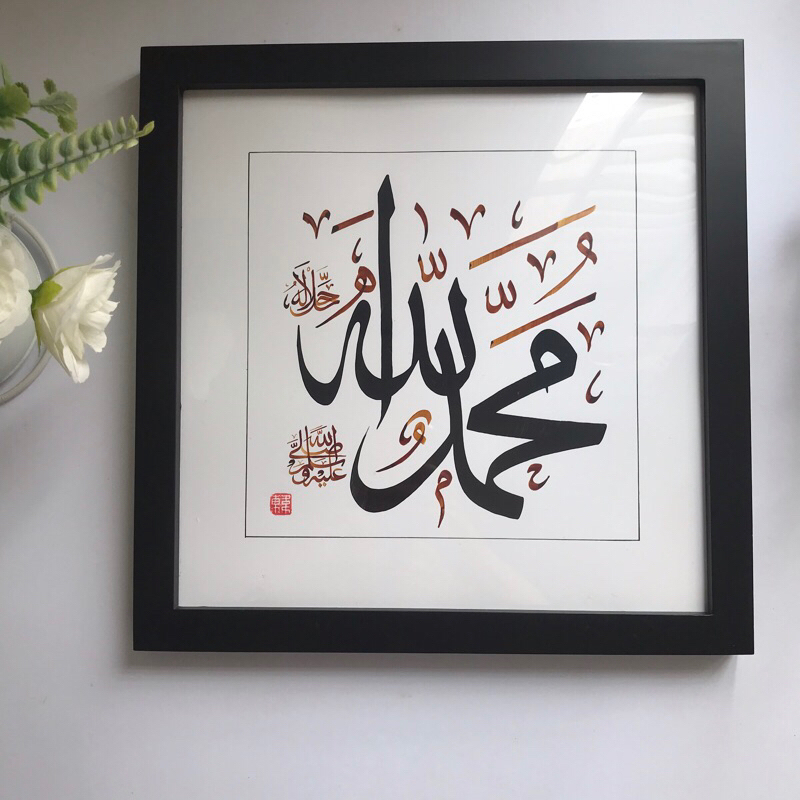 الله
جل جلاله
محمد
صلى الله عليه وسلم